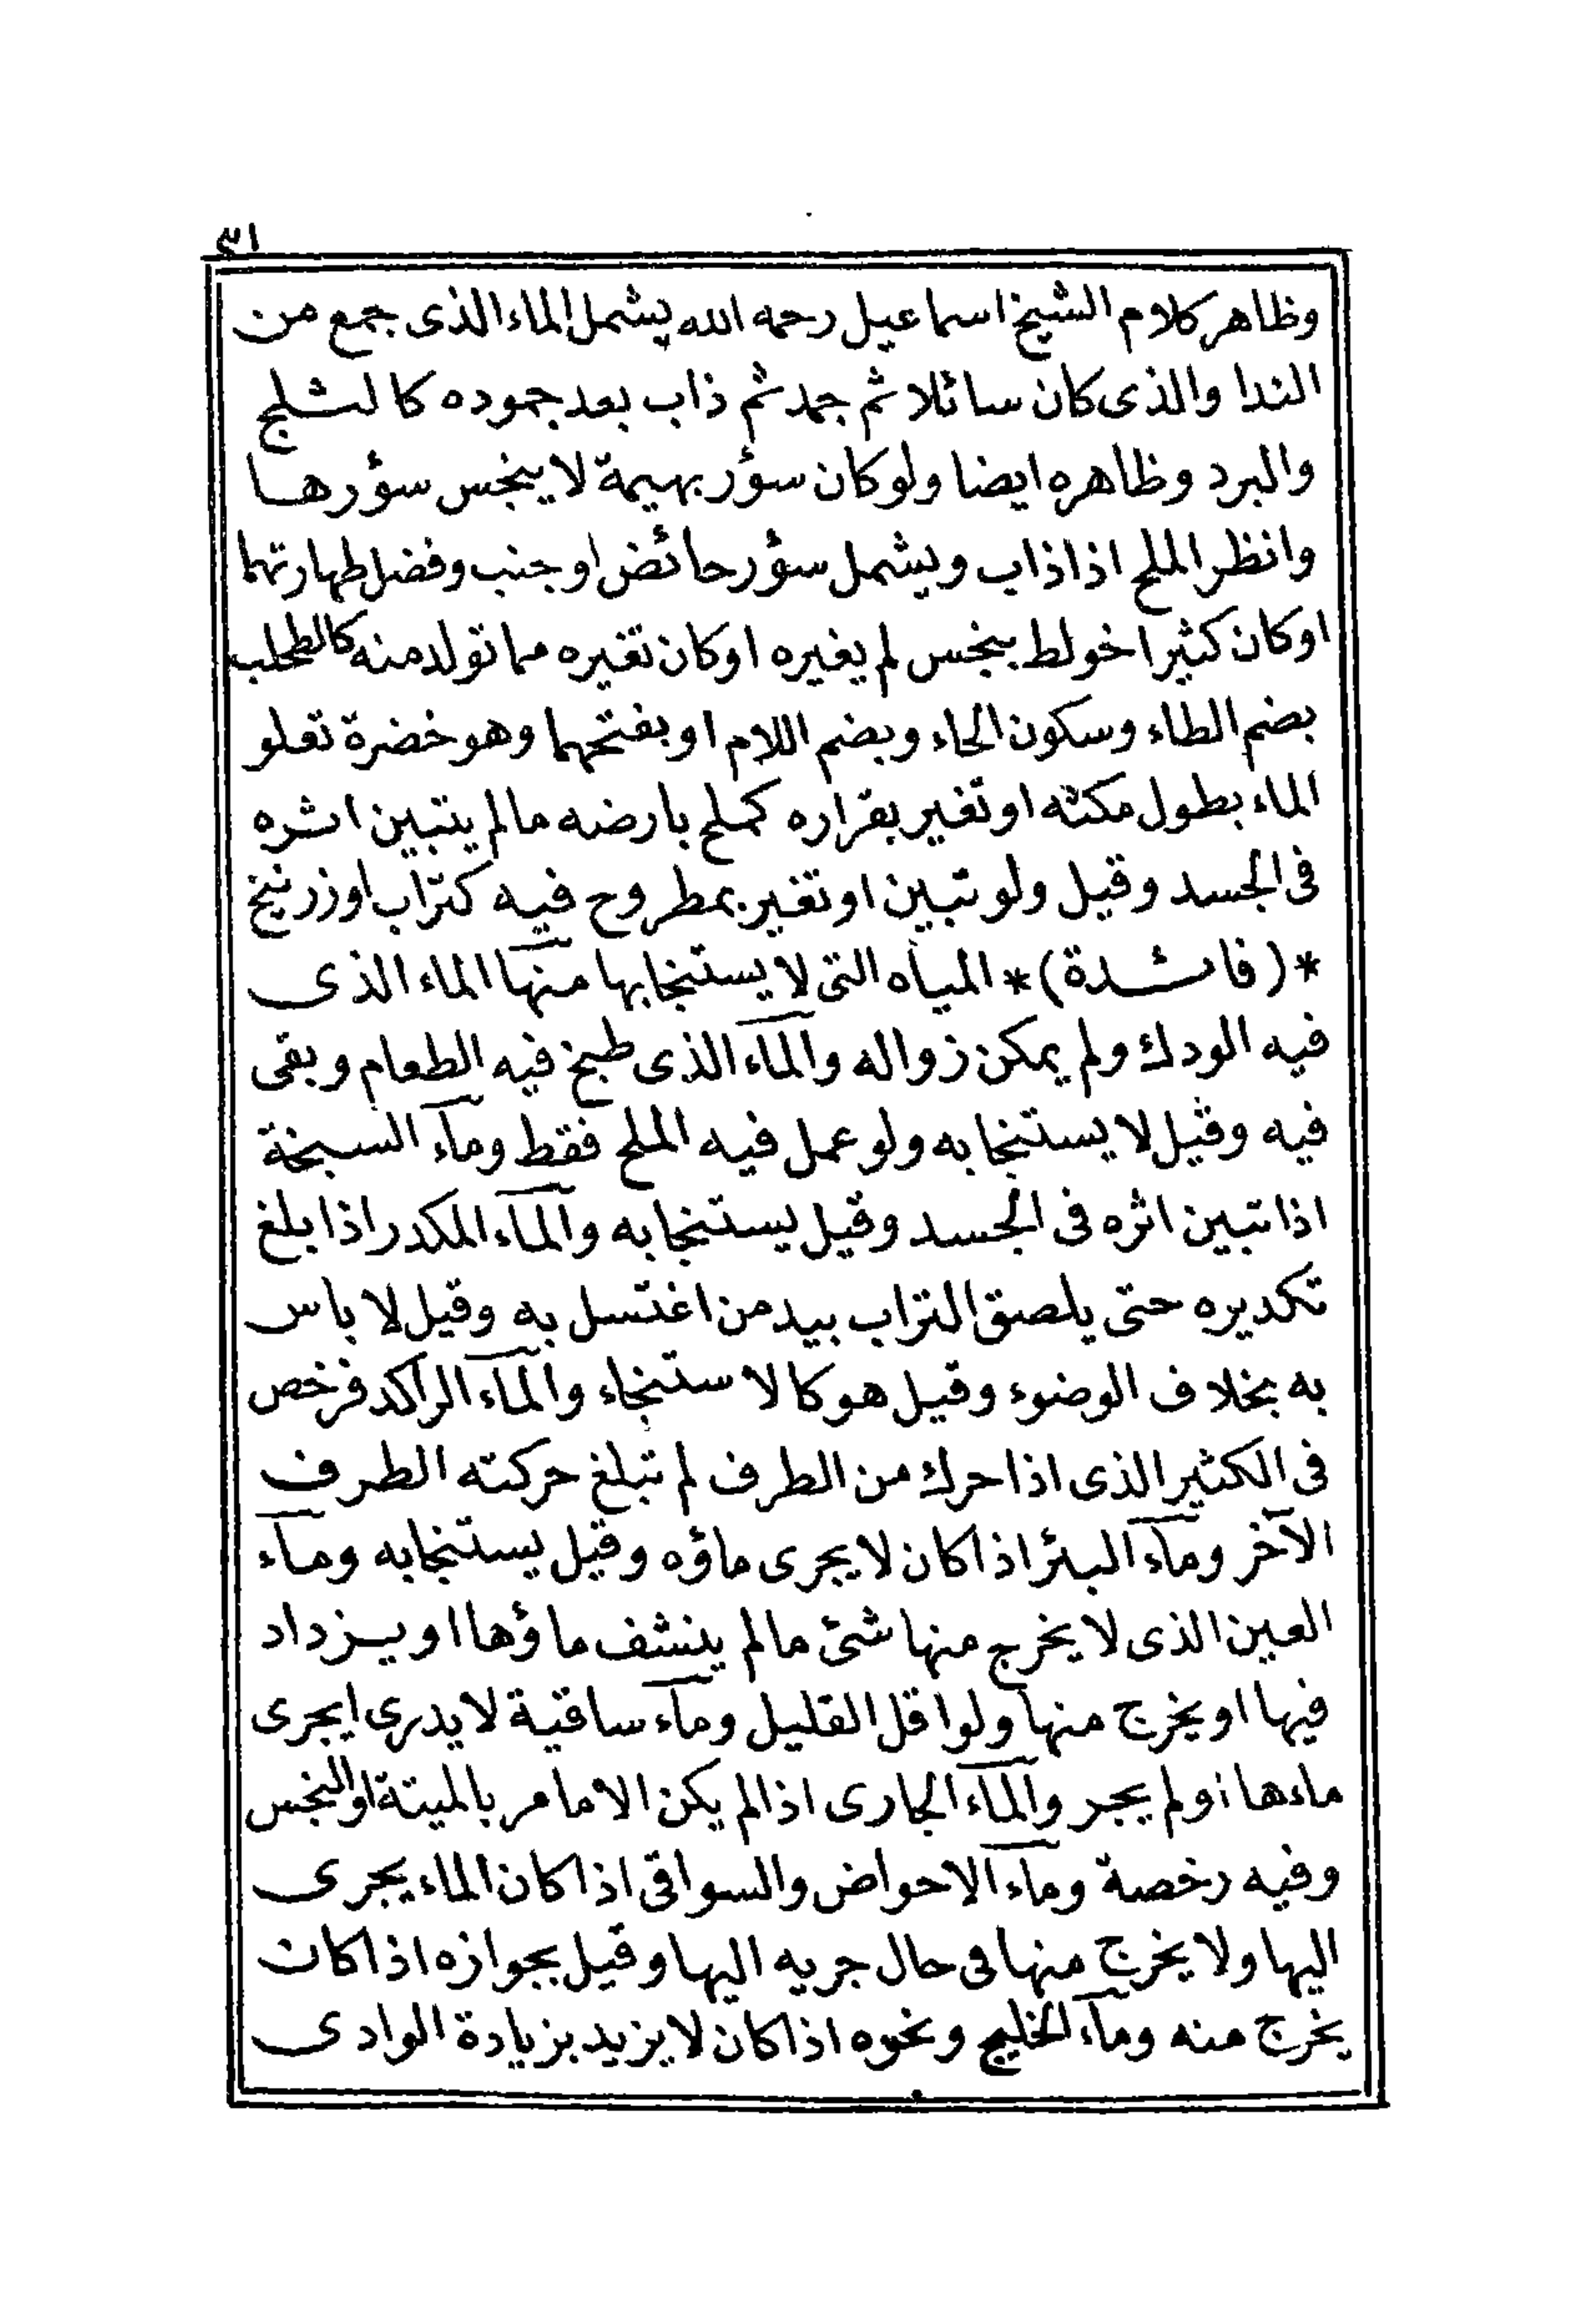 ٣١
وظاهر كلام الشيخ اسماعيل رحمه الله يشمل الماء الذى جمع من
الندا والذى كان سائلا ثم جمد ثم ذاب بعد جموده كالثلج
والبرد وظاهره ايضا ولو كان سؤر بهيمة لا ينجس سؤرها
وانظر الملح اذا ذاب ويشمل سؤر حائض او جنب وفضل طهارتهما
او كان كثيرا خولط بنجس لم يغيره او كان تغيره مما تولد منه كالطحلب
بضم الطاء وسكون الحاء وبضم اللام او بفتحهما وهو خضرة تعلو
الماء بطول مكثه او تغير بقراره كملح بارضه مالم يتبين اثره
فى الجسد وقيل ولو تبين او تغير بمطروح فيه كتراب او زرنيخ
*(فائدة)* المياه التى لا يستنجا بها منها الماء الذى
فيه الودك ولم يمكن زواله والماء الذى طبخ فيه الطعام وبقى
فيه وقيل لا يستنجا به ولو عمل فيه الملح فقط وماء السبخة
اذا تبين اثره فى الجسد وقيل يستنجا به والماء المكدر اذا بلغ
تكديره حتى يلصق التراب بيد من اغتسل به وقيل لا باس
به بخلاف الوضوء وقيل هو كالاستنجاء والماء الراكد فرخص
فى الكثير الذى اذا حرك من الطرف لم تبلغ حركته الطرف
الآخر وماء البئر اذا كان لا يجرى ماؤه وقيل يستنجا به وماء
العين الذى لا يخرج منها شئ مالم ينشف ماؤها او يزداد
فيها او يخرج منها ولو اقل القليل وماء ساقية لا يدرى ايجرى
ماءها او لم يجر والماء الجارى اذا لم يكن الا مامر بالميتة او النجس
وفيه رخصة وماء الاحواض والسواقى اذا كان الماء يجرى
اليها ولا يخرج منها فى حال جريه اليها وقيل بجوازه اذا كان
يخرج منه وماء الخليج ونحوه اذا كان لا يزيد بزيادة الوادى